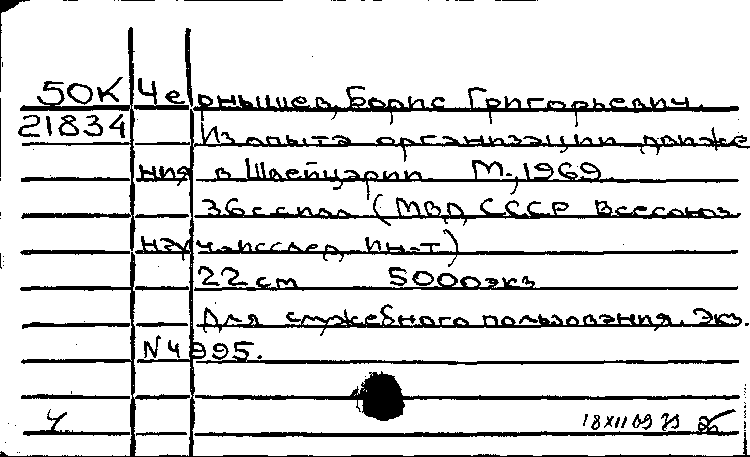 50К Чернышев, Борис Григорьевич.
21834 Из опыта организации движе
ния в Швейцарии. М., 1969.
36с с илл (МВД СССР Всесоюз
науч-исслед. ин-т)
22см 5000экз
Для служебного пользования. Экз.
N4995.
Ч 18 XII 69